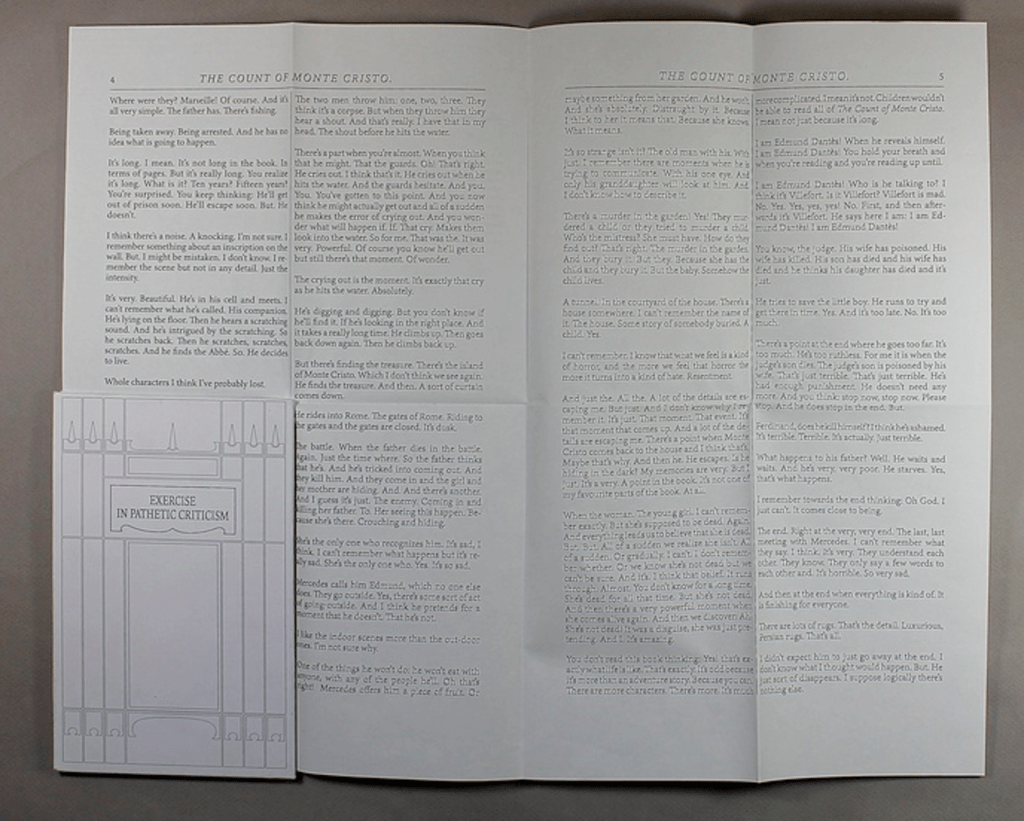 4
THE COUNT OF MONTE CRISTO.
Where were they? Marseille! Of course. And it's
all very simple. The father has. There's fishing.
Being taken away. Being arrested. And he has no
idea what is going to happen.
It's long. I mean. It's not long in the book. In
terms of pages. But it's really long. You realize
it's long. What is it? Ten years? Fifteen years?
You're surprised. You keep thinking: He'll get
out of prison soon. He'll escape soon. But. He
doesn't.
I think there's a noise. A knocking. I'm not sure. I
remember something about an inscription on the
wall. But. I might be mistaken. I don't know. I re-
member the scene but not in any detail. Just the
intensity.
It's very. Beautiful. He's in his cell and meets. I
can't remember what he's called. His companion.
He's lying on the floor. Then he hears a scratching
sound. And he's intrigued by the scratching. So
he scratches back. Then he scratches, scratches,
scratches. And he finds the Abbé. So. He decides
to live.
Whole characters I think I've probably lost.
EXERCISE
IN PATHETIC CRITICISM
The two men throw him: one, two, three. They
think it's a corpse. But when they throw him they
hear a shout. And that's really. I have that in my
head. The shout before he hits the water.
There's a part when you're almost. When you think
that he might. That the guards. Oh! That's right.
He cries out. I think that's it. He cries out when he
hits the water. And the guards hesitate. And you.
You. You've gotten to this point. And you now
think he might actually get out and all of a sudden
he makes the error of crying out. And you won-
der what will happen if. If. That cry. Makes them
look into the water. So for me. That was the. It was
very. Powerful. Of course you know he'll get out
but still there's that moment. Of wonder.
The crying out is the moment. It's exactly that cry
as he hits the water. Absolutely.
He's digging and digging. But you don't know if
he'll find it. If he's looking in the right place. And
it takes a really long time. He climbs up. Then goes
back down again. Then he climbs back up.
But there's finding the treasure. There's the island
of Monte Cristo. Which I don't think we see again.
He finds the treasure. And then. A sort of curtain
comes down.
He rides into Rome. The gates of Rome. Riding to
the gates and the gates are closed. It's dusk.
The battle. When the father dies in the battle.
Again. Just the time where. So the father thinks
that he's. And he's tricked into coming out. And
they kill him. And they come in and the girl and
her mother are hiding. And. And there's another.
And I guess it's just. The enemy. Coming in and
killing her father. To. Her seeing this happen. Be-
cause she's there. Crouching and hiding.
She's the only one who recognizes him. It's sad, I
think. I can't remember what happens but it's re-
ally sad. She's the only one who. Yes. It's so sad.
Mercedes calls him Edmund, which no one else
does. They go outside. Yes, there's some sort of act
of going outside. And I think he pretends for a
moment that he doesn't. That he's not.
I like the indoor scenes more than the out-door
ones. I'm not sure why.
One of the things he won't do: he won't eat with
anyone, with any of the people he'll. Oh that's
right! Mercedes offers him a piece of fruit. Or
THE COUNT OF MONTE CRISTO.
5
maybe something from her garden. And he won't.
And she's absolutely. Distraught by it. Because
I think to her it means that. Because she knows.
What it means.
It's so strange isn't it? The old man with his. With
just. I remember there are moments when he is
trying to communicate. With his one eye. And
only his granddaughter will look at him. And
I don't know how to describe it.
There's a murder in the garden! Yes! They mur-
dered a child or they tried to murder a child.
Who's the mistress? She must have. How do they
find out? That's right. The murder in the garden.
And they bury it! But they. Because she has the
child and they bury it. But the baby. Somehow the
child lives.
A tunnel. In the courtyard of the house. There's a
house somewhere. I can't remember the name of
it. The house. Some story of somebody buried. A
child. Yes.
I can't remember. I know that what we feel is a kind
of horror, and the more we feel that horror the
more it turns into a kind of hate. Resentment.
And just the. All the. A lot of the details are es-
caping me. But just. And I don't know why I re-
member it. It's just. That moment. That event. It's
that moment that comes up. And a lot of the de-
tails are escaping me. There's a point when Monte
Cristo comes back to the house and I think that's.
Maybe that's why. And then he. He escapes. Is he
hiding in the dark? My memories are very. But I
just. It's a very. A point in the book. It's not one of
my favourite parts of the book. At all.
When the woman. The young girl. I can't remem-
ber exactly. But she's supposed to be dead. Again.
And everything leads us to believe that she is dead.
But. But. All of a sudden we realize she isn't. All
of a sudden. Or gradually. I can't. I don't remem-
ber whether. Or we know she's not dead but we
can't be sure. And it's. I think that belief. It runs
through. Almost. You don't know for a long time.
She's dead for all that time. But she's not dead.
And then there's a very powerful moment when
she comes alive again. And then we discover: Ah!
She's not dead! It was a disguise, she was just pre-
tending. And it. It's amazing.
You don't read this book thinking: Yes! that's ex-
actly what life is like. That's exactly. It's odd because
It's more than an adventure story. Because you can.
There are more characters. There's more. It's much
more complicated. I mean it's not. Children wouldn't
be able to read all of The Count of Monte Cristo.
I mean not just because it's long.
I am Edmund Dantès! When he reveals himself.
I am Edmund Dantès! You hold your breath and
when you're reading and you're reading up until.
I am Edmund Dantès! Who is he talking to? I
think it's Villefort. Is it Villefort? Villefort is mad.
No. Yes. Yes, yes, yes! No. First, and then after-
words it's Villefort. He says here I am: I am Ed-
mund Dantès! I am Edmund Dantès!
You know, the judge. His wife has poisoned. His
wife has killed. His son has died and his wife has
died and he thinks his daughter has died and it's
just.
He tries to save the little boy. He runs to try and
get there in time. Yes. And it's too late. No. It's too
much.
There's a point at the end where he goes too far. It's
too much. He's too ruthless. For me it is when the
judge's son dies. The judge's son is poisoned by his
wife. That's just terrible. That's just terrible. He's
had enough punishment. He doesn't need any
more. And you think: stop now, stop now. Please
stop. And he does stop in the end. But.
Ferdinand, does he kill himself? I think he's ashamed.
It's terrible. Terrible. It's actually. Just terrible.
What happens to his father? Well. He waits and
waits. And he's very, very poor. He starves. Yes,
that's what happens.
I remember towards the end thinking: Oh God. I
just can't. It comes close to being.
The end. Right at the very, very end. The last, last
meeting with Mercedes. I can't remember what
they say. I think. It's very. They understand each
other. They know. They only say a few words to
each other and. It's horrible. So very sad.
And then at the end when everything is kind of. It
is finishing for everyone.
There are lots of rugs. That's the detail. Luxurious,
Persian rugs. That's all.
I didn't expect him to just go away at the end. I
don't know what I thought would happen. But. He
just sort of disappears. I suppose logically there's
nothing else.